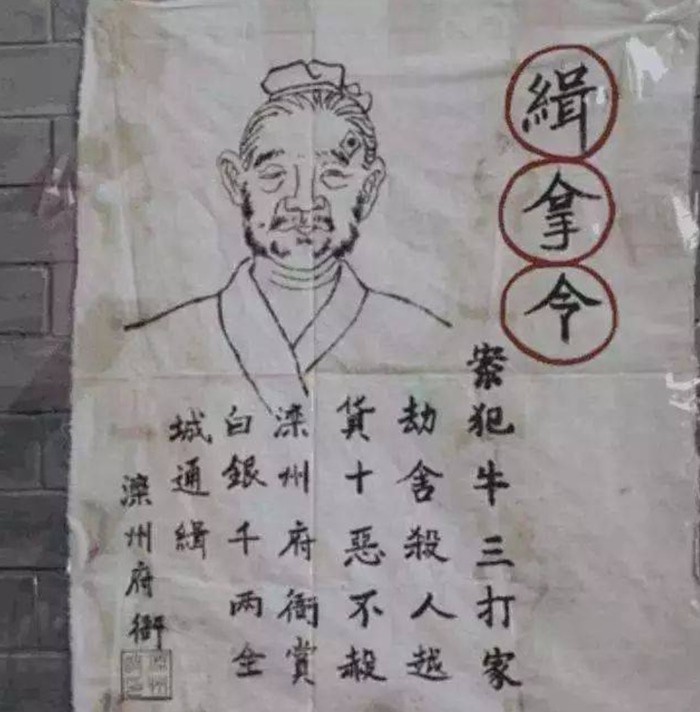 緝拿令
案犯牛三打家
劫舍殺人越
貨十惡不殺
滦州府衙賞
白銀千兩全
城通緝
滦州府衙